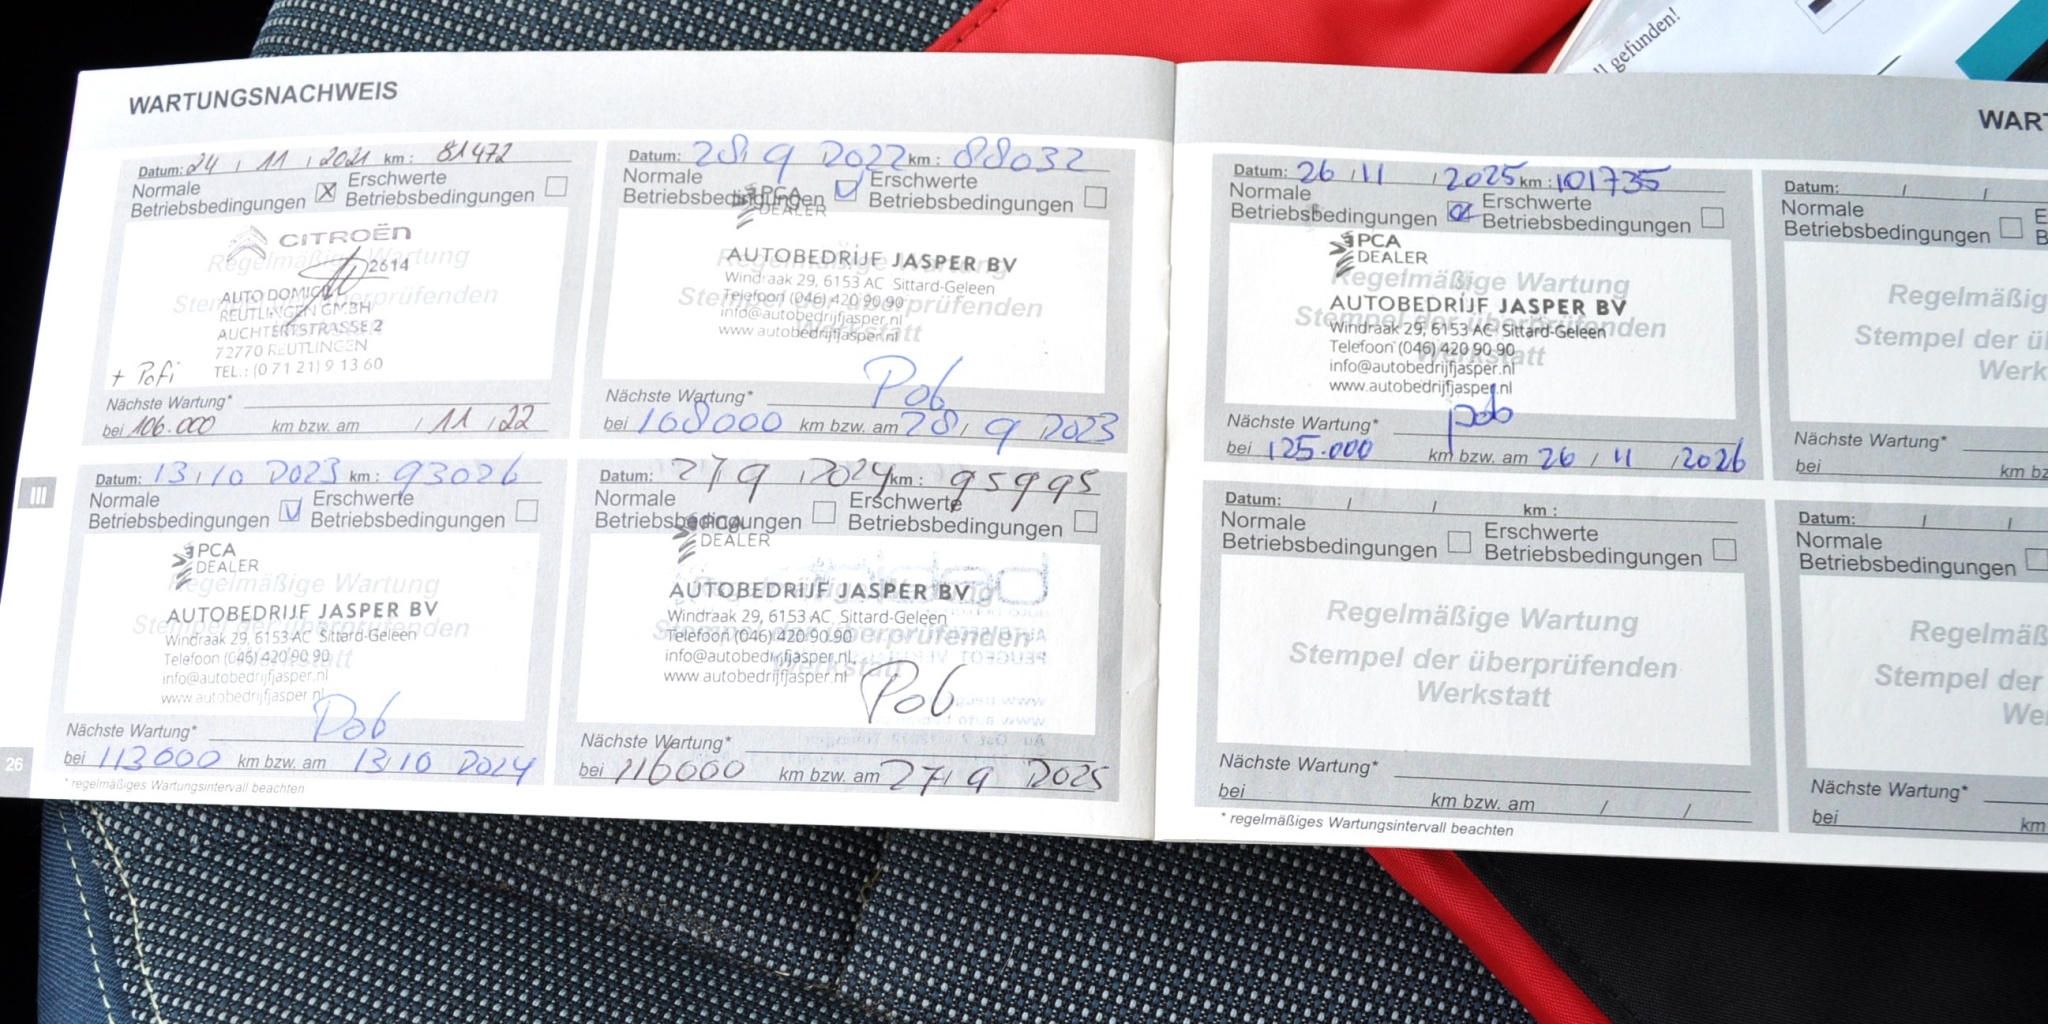 ll gefunden!
WARTUNGSNACHWEIS
Datum: 24 / 11 / 2021 km : 81472
Normale
Betriebsbedingungen X
Erschwerte
Betriebsbedingungen
CITROËN
2614
Regelmäßige Wartung
Stempel der überprüfenden
AUTO DOMICIL
REUTLINGEN GMBH
AUCHTERTSTRASSE 2
72770 REUTLINGEN
TEL.: (0 71 21) 9 13 60
+ Pofi
Nächste Wartung*
bei 106.000 km bzw. am / 11 / 22
Datum: 28/ 9 2022 km : 88032
Normale
Betriebsbedingungen
Erschwerte
Betriebsbedingungen
PCA
DEALER
Regelmäßige Wartung
AUTOBEDRIJF JASPER BV
Windraak 29, 6153 AC Sittard-Geleen
Stempel der überprüfenden
Telefoon (046) 420 90 90
info@autobedrijfjasper.nl
Werkstatt
www.autobedrijfjasper.nl
Pob
Nächste Wartung*
bei 108000 km bzw. am 28/ 9 2023
Datum: 13/10 2023 km : 93026
Normale
Betriebsbedingungen
Erschwerte
Betriebsbedingungen
PCA
DEALER
Regelmäßige Wartung
AUTOBEDRIJF JASPER BV
Stempel der überprüfenden
Windraak 29, 6153 AC Sittard-Geleen
Telefoon (046) 420 90 90
Werkstatt
info@autobedrijfjasper.nl
www.autobedrijfjasper.nl
Pob
Nächste Wartung*
bei 113000 km bzw. am 13/10 2024
* regelmäßiges Wartungsintervall beachten
Datum: 27/9 2024 km : 95995
Normale
Betriebsbedingungen
Erschwerte
Betriebsbedingungen
PCA
DEALER
Regelmäßige Wartung
AUTOBEDRIJF JASPER BV
Windraak 29, 6153 AC Sittard-Geleen
Stempel der überprüfenden
Telefoon (046) 420 90 90
info@autobedrijfjasper.nl
Werkstatt
www.autobedrijfjasper.nl
Pob
Nächste Wartung*
bei 116000 km bzw. am 27/ 9 2025
III
26
WART
Datum: 26 / 11 / 2025 km : 101735
Normale
Betriebsbedingungen
Erschwerte
Betriebsbedingungen
PCA
DEALER
Regelmäßige Wartung
AUTOBEDRIJF JASPER BV
Stempel der überprüfenden
Windraak 29, 6153 AC Sittard-Geleen
Telefoon (046) 420 90 90
Werkstatt
info@autobedrijfjasper.nl
www.autobedrijfjasper.nl
pob
Nächste Wartung*
bei 125.000 km bzw. am 26 / 11 / 2026
Datum: / /
Normale
Betriebsbedingungen
E
B
Regelmäßig
Stempel der ü
Werk
Nächste Wartung*
bei km bz
Datum: / / km :
Normale
Betriebsbedingungen
Erschwerte
Betriebsbedingungen
Regelmäßige Wartung
Stempel der überprüfenden
Werkstatt
Nächste Wartung*
bei km bzw. am / /
* regelmäßiges Wartungsintervall beachten
Datum: / /
Normale
Betriebsbedingungen
Regelmäß
Stempel der
We
Nächste Wartung*
bei km